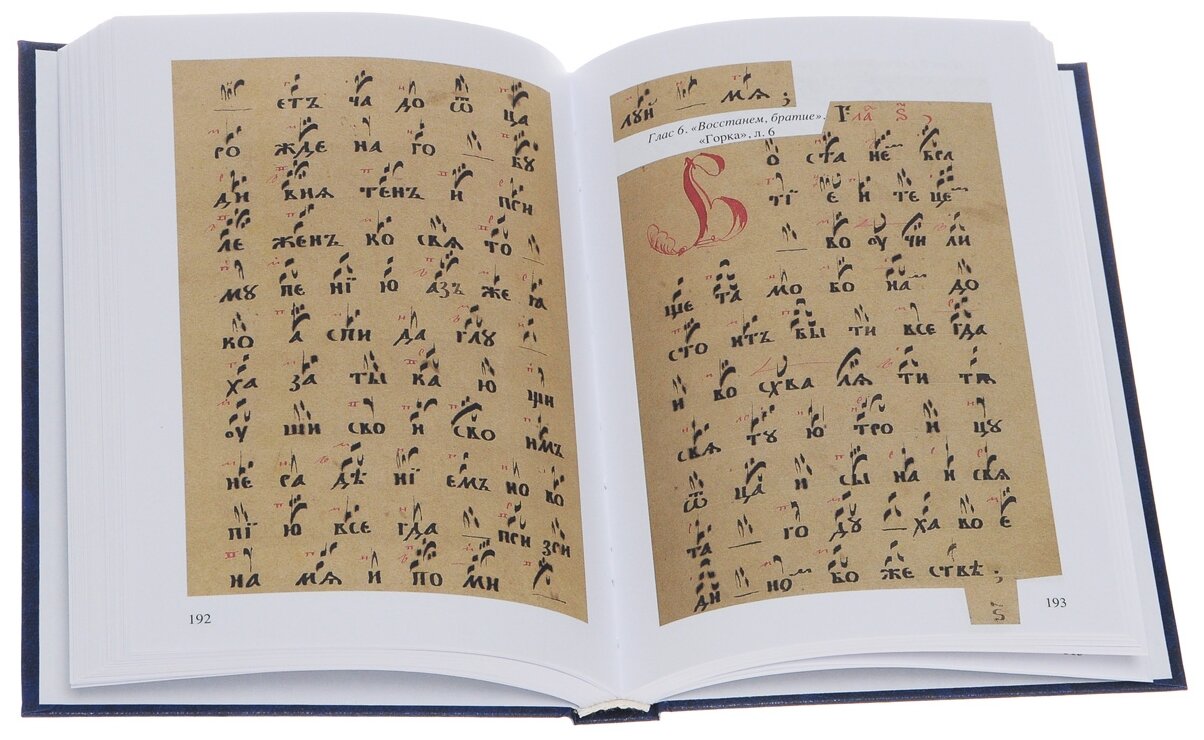 етъ ча до ѿ ца
ро жде на го бу
ди вия тенъ и пси
ле женъ ко свѧ то
му пе нї ю азъ же ꙗ
ко а спи да глу
ха за ты ка ю щи
оу ши сво и сво имъ
не ра дѣ нї емъ но во
пї ю все гда пси зри
на мѧ и по ми
192
луй мѧ ;
Глас 6. «Восстанем, братие».
«Горка», л. 6
гла ѕ
В о ста не бра
тї е и те це
во оу чи ли
ще та мо бо на до
сто итъ бы ти все гда
и во схва лѧ ти
свѧ ту ю тро и цу
ѿ ца и сы на и свѧ
та го ду ха во е
ди но бо же ствѣ ;
ѕ
193